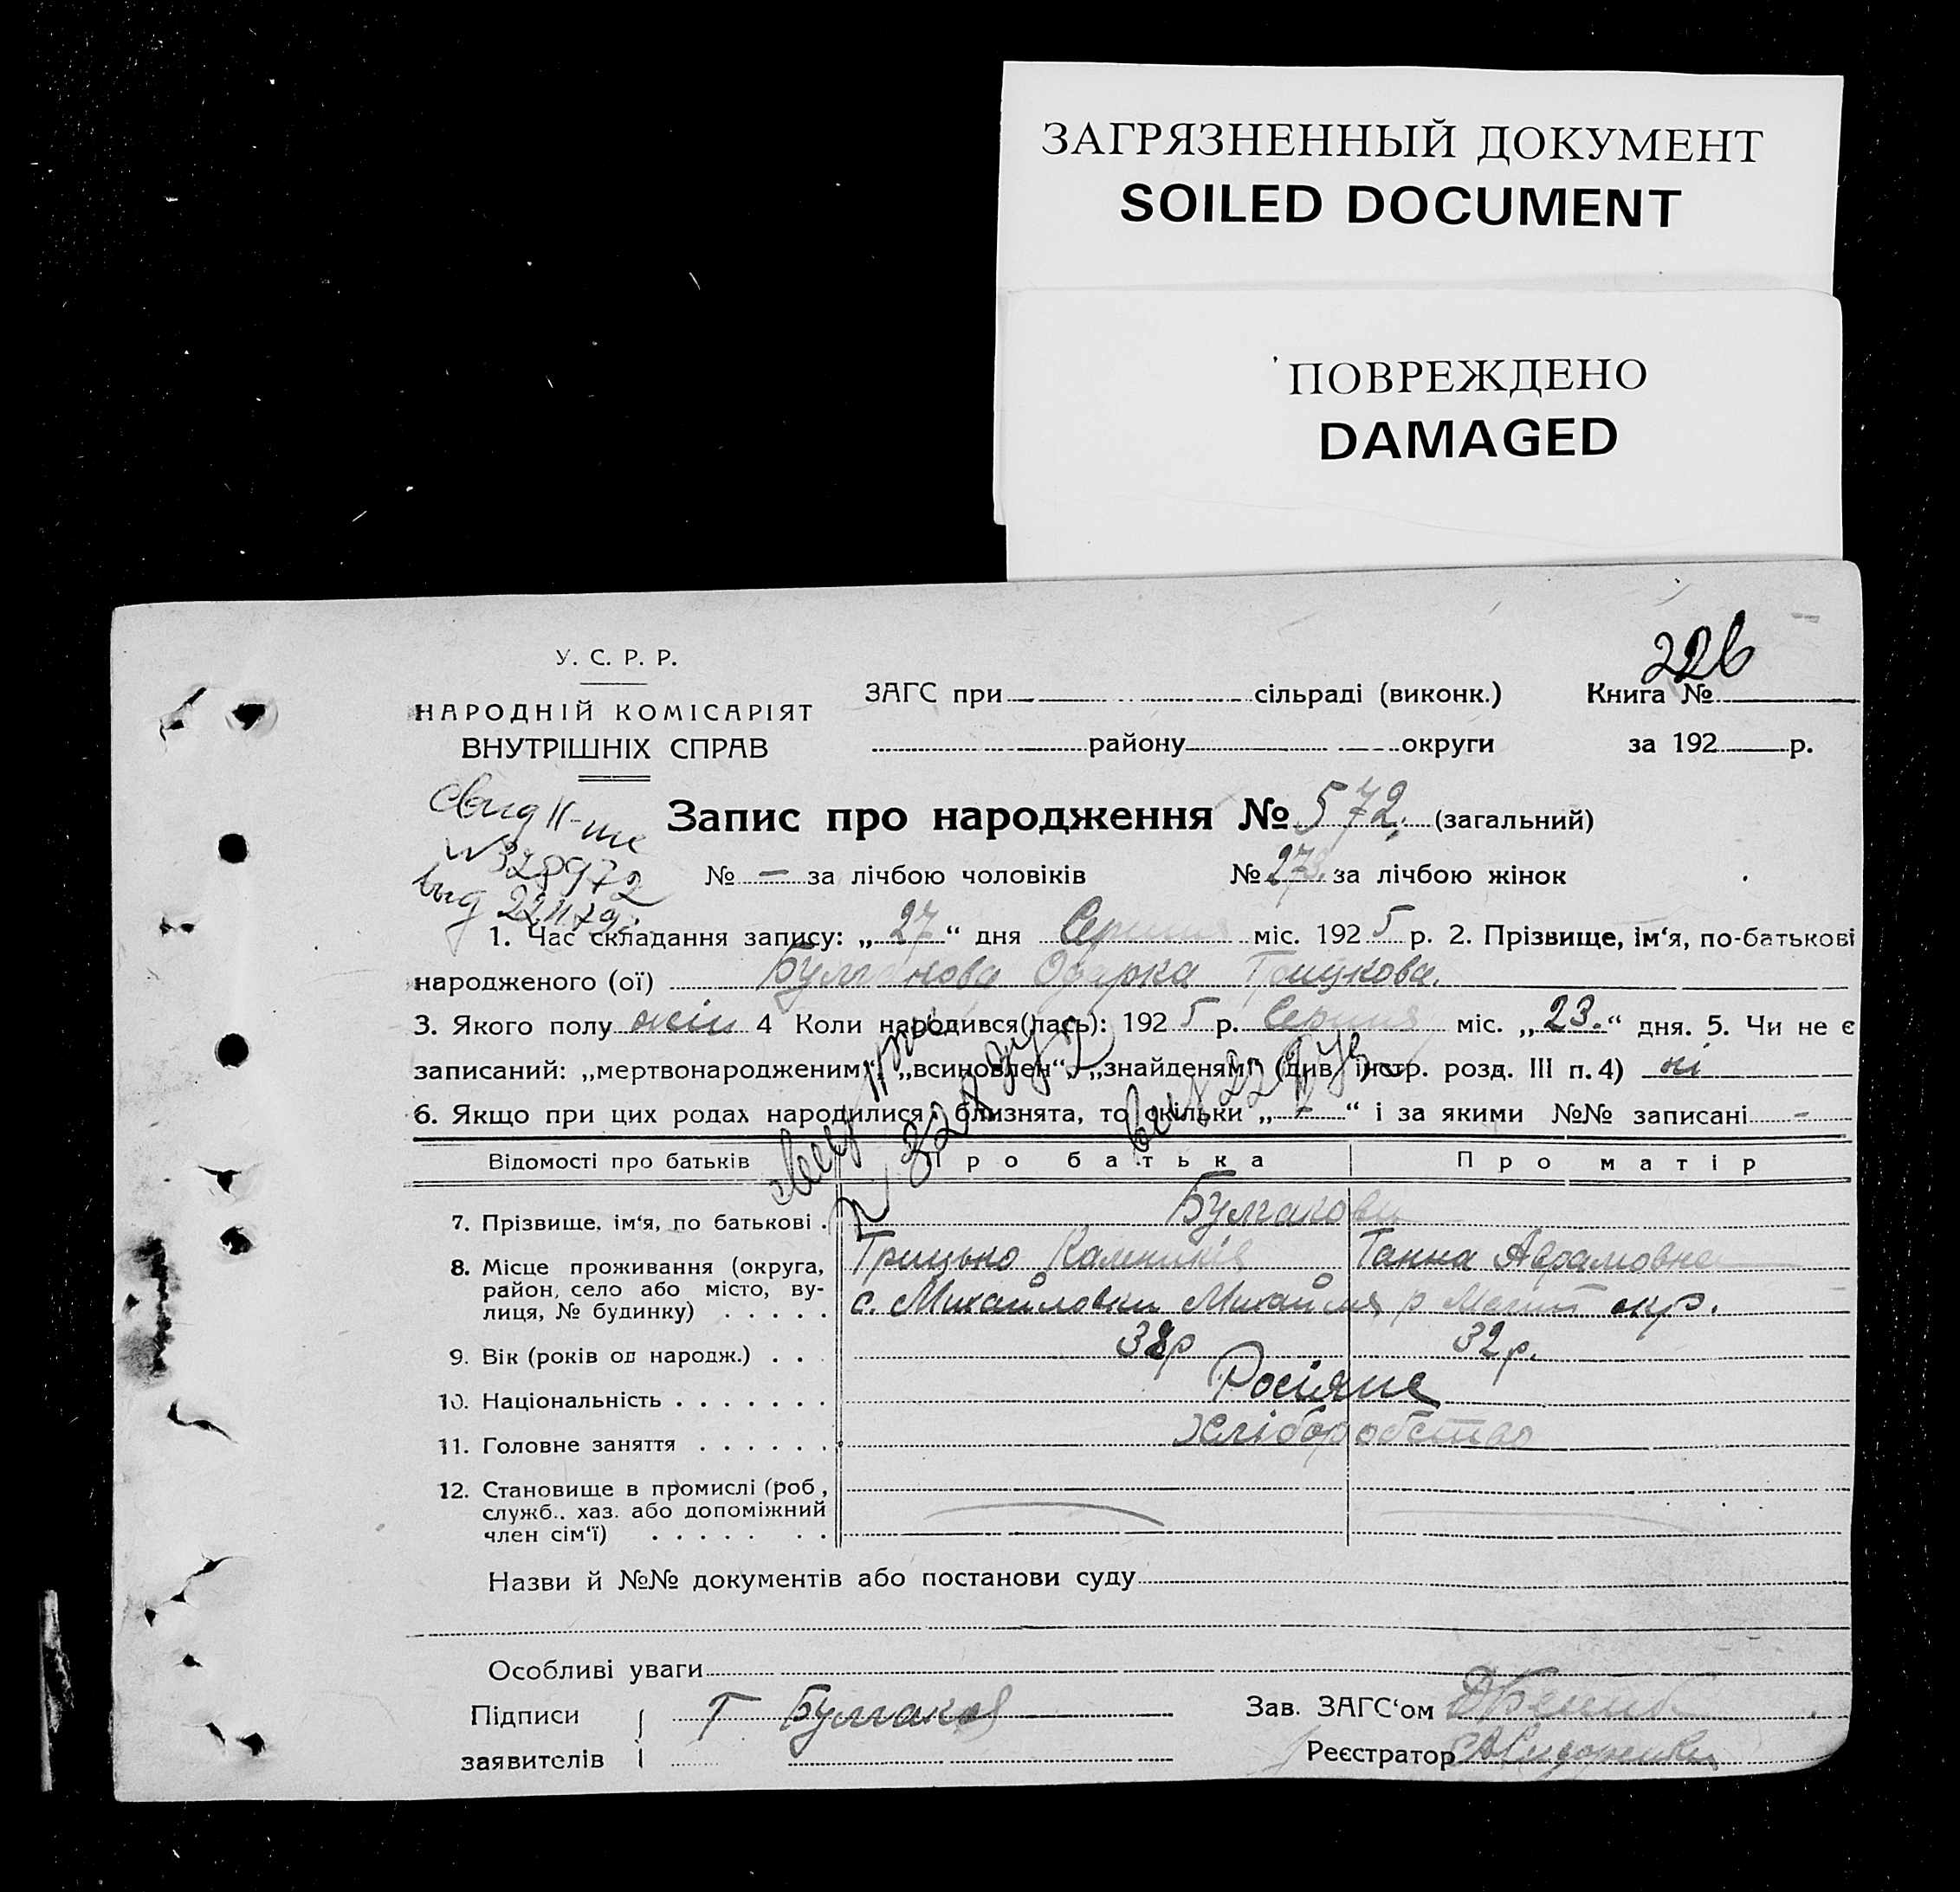 ЗАГРЯЗНЕННЫЙ ДОКУМЕНТ
SOILED DOCUMENT
ПОВРЕЖДЕНО
DAMAGED
226
У. С. Р. Р.
НАРОДНІЙ КОМІСАРІЯТ
ВНУТРІШНІХ СПРАВ
ЗАГС при сільраді (виконк.) Книга №
району округи за 192 р.
Запис про народження № 572. (загальний)
№ — за лічбою чоловіків № 273. за лічбою жінок
1. Час складання запису: „27“ дня Серпня міс. 1925 р. 2. Прізвище, ім‘я, по-батькові
народженого (ої) Булгакова Одарка Грицкова.
3. Якого полу жін 4 Коли народився(лась): 1925 р. Серпня міс. „23.“ дня. 5. Чи не є
записаний: „мертвонародженим“, „всиновлен“, „знайденям“ (див. інстр. розд. III п. 4) ні
6. Якщо при цих родах народилися близнята, то скільки „-“ і за якими №№ записані -
Відомості про батьків Про батька Про матір
7. Прізвище, ім‘я, по батькові . Булгакови
Грицько Ганна Абрамовна
8. Місце проживання (округа,
район, село або місто, ву-
лиця, № будинку) . . . . . с. Михайловки р окр.
9. Вік (років од народж.) . . . 32р.
10. Національність . . . . . . . Росіяне
11. Головне заняття . . . . . . Хліборобство
12. Становище в промислі (роб.,
служб., хаз. або допоміжний
член сім‘ї) . . . . . . .
Назви й №№ документів або постанови суду
Особливі уваги
Підписи Г Булгаков Зав. ЗАГС‘ом
заявителів Реєстратор